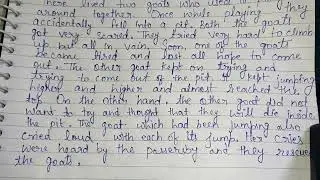 There lived two goats who used to
around together. Once while playing they
accidentally fell into a pit. Both goats
got very scared. They tried very hard to climb
up but all in vain. Soon, one of the goats
became tired and lost all hope to come
out. The other goat kept on trying and
trying to come out of the pit. It kept jumping
higher and higher and almost reached the
top. On the other hand, the other goat did not
want to try and thought that they will die inside
the pit. The goat which had been jumping also
cried loud with each of its jump. Her cries
were heard by the passerby and they rescue
the goats.